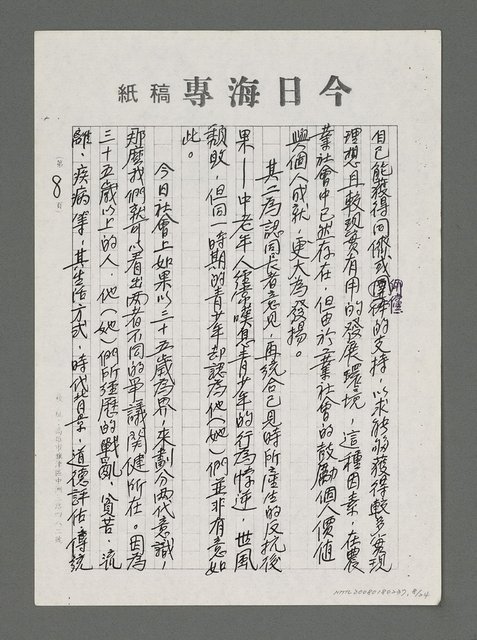 今日海專稿紙
自己能獲得同儕或團體的支持，以求能夠獲得較多實現
理想且較現實有用的發展環境，這種因素，在農
業社會中已然存在，但由於工業社會的鼓勵個人價值
與個人成就，更大為發揚。
其二為認同長者意見，再統合己見時所產生的反抗後
果——中老年人經常嘆息青少年的行為悖逆，世風
頹敗，但同一時期的青少年却認為他（她）們並非有意如
此。
今日社會上如果以三十五歲為界，來劃分兩代意識，
那麼我們就可以看出兩者不同的爭議関健所在。因為
三十五歲以上的人，他（她）們所經歷的戰亂、貧苦、流
離、疾病等，其生活方式、時代背景、道德評估、傳統
第8頁
NMTL20080180237, 8/24